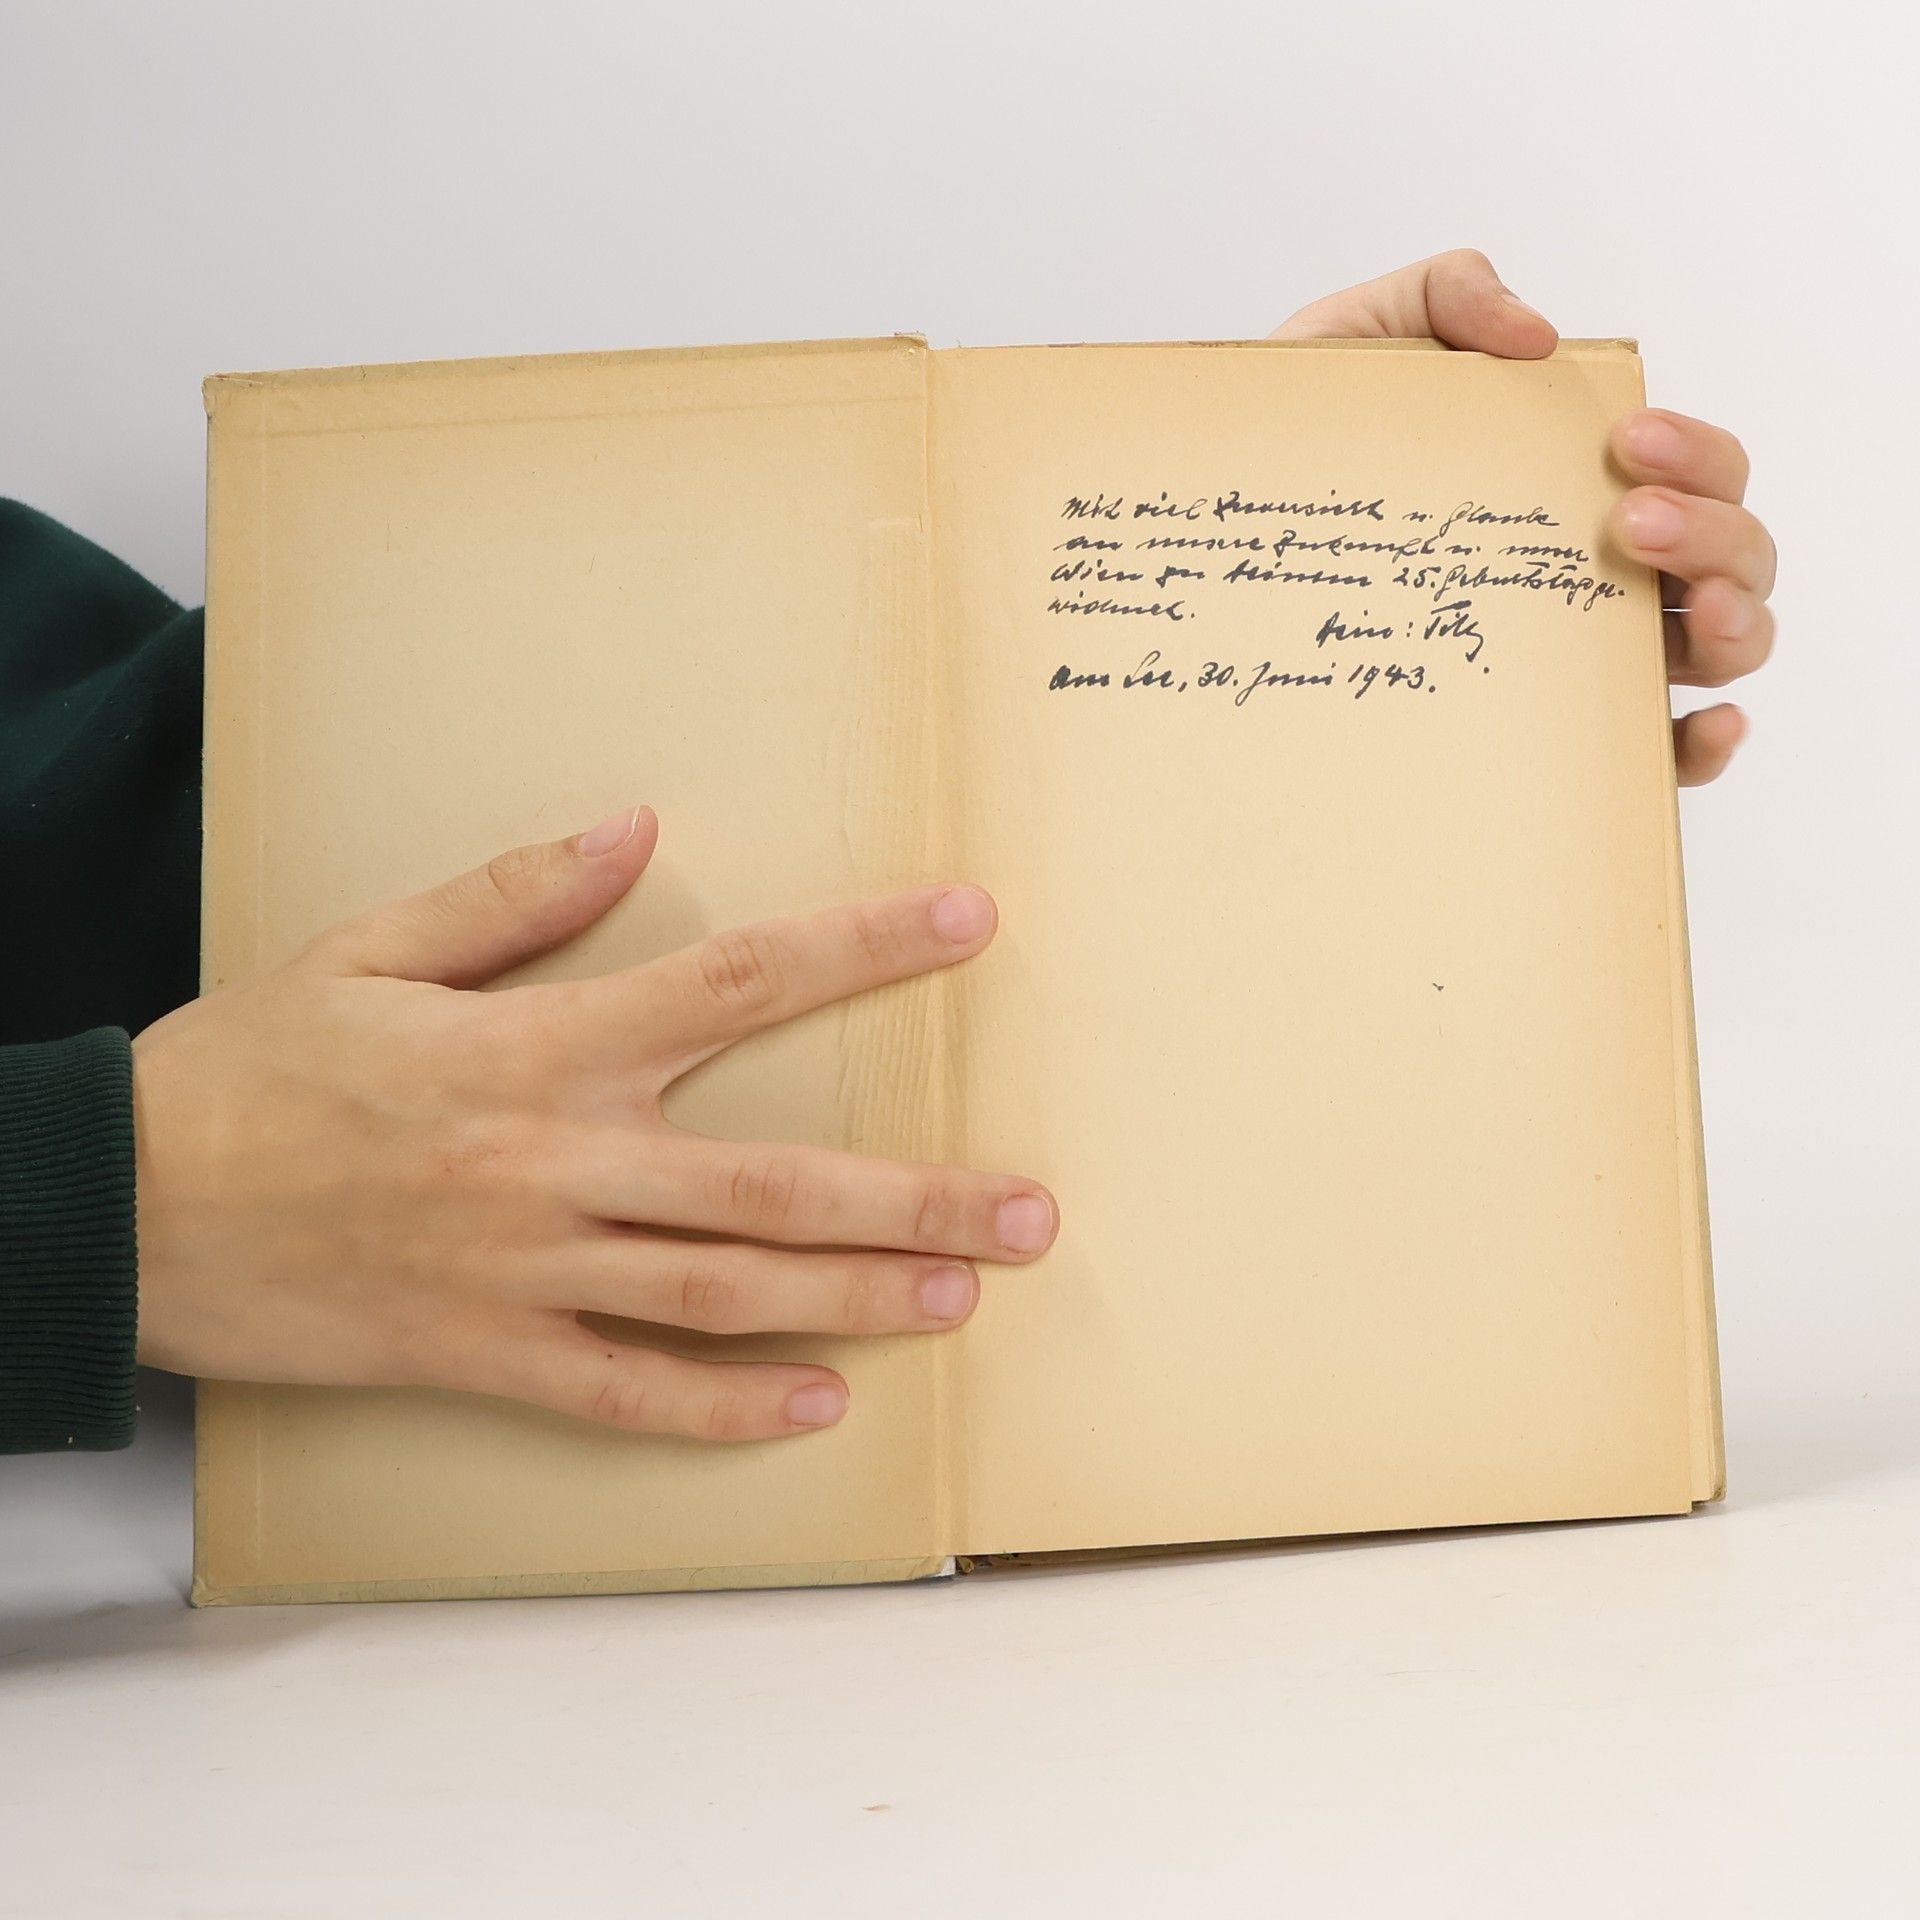 Mit viel Zuversicht u. Glaube
an unsere Zukunft u. unser
Wien zu deinem 25. Geburtstag ge-
widmet.
dein: Tilly
am See, 30. Juni 1943.